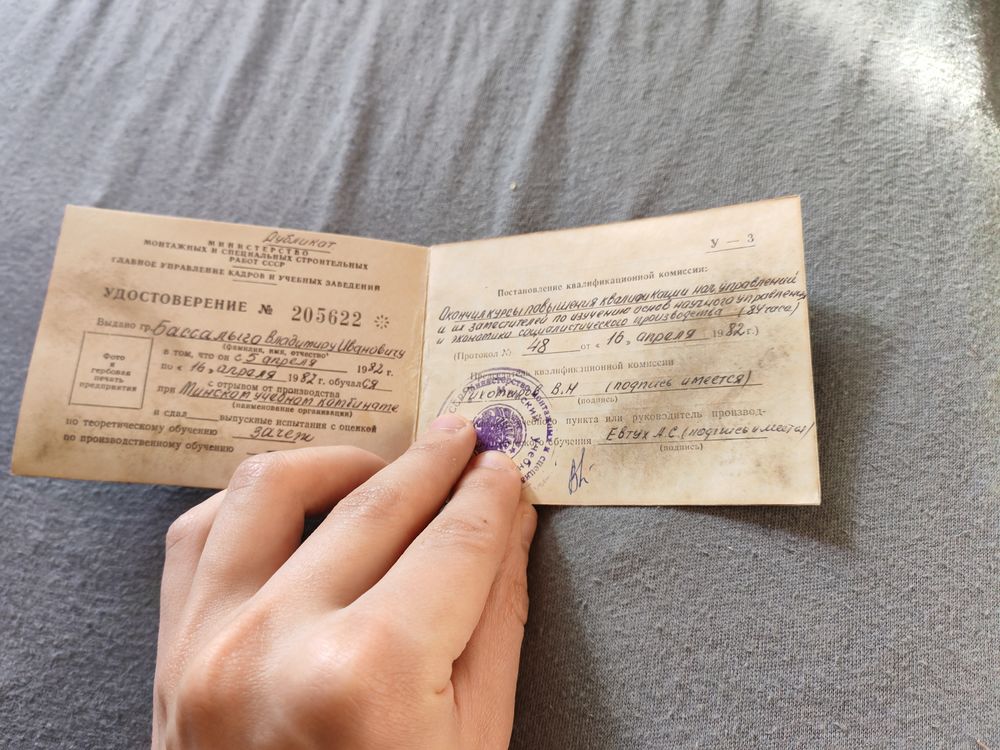 Дубликат
МИНИСТЕРСТВО
МОНТАЖНЫХ И СПЕЦИАЛЬНЫХ СТРОИТЕЛЬНЫХ
РАБОТ СССР
ГЛАВНОЕ УПРАВЛЕНИЕ КАДРОВ И УЧЕБНЫХ ЗАВЕДЕНИЙ
УДОСТОВЕРЕНИЕ № 205622
Выдано гр. Бассалыга Владимиру Ивановичу
(фамилия, имя, отчество)
в том, что он с 5 апреля 1982 г.
по «16» апреля 1982 г. обучался
с отрывом от производства
при Минском учебном комбинате
(наименование организации)
и сдал выпускные испытания с оценкой
по теоретическому обучению зачет
по производственному обучению
Фото
и
гербовая
печать
предприятия
У — 3
Постановление квалификационной комиссии:
Окончил курсы повышения квалификации нач. управлений
и их заместителей по изучению основ научного управления
и экономики социалистического производства (84 часа)
(Протокол № 48 от «16» апреля 1982 г.)
квалификационной комиссии
В.Н (подпись имеется)
(подпись)
пункта или руководитель производ-
обучения Евтух А.С (подпись имеется)
(подпись)